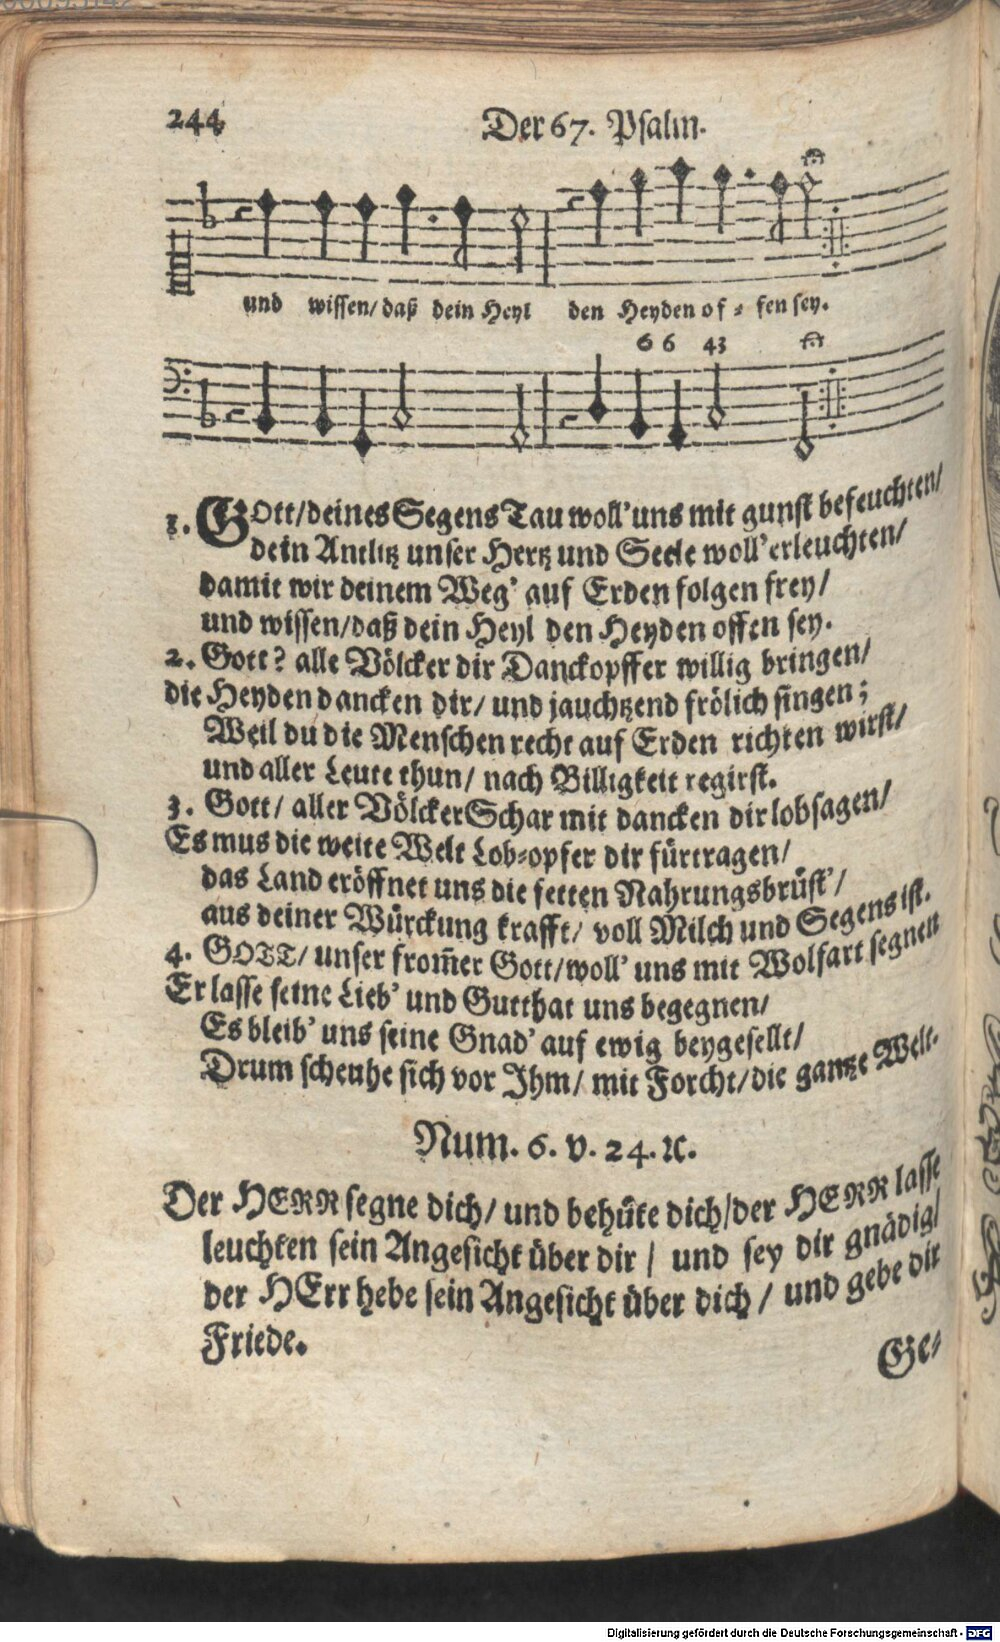 244 Der 67. Psalm.
und wissen/ daß dein Heyl den Heyden of⸗ fen sey.
6 6 43
1. GOtt/deines Segens Tau woll' uns mit gunst befeuchten/
dein Antlitz unser Hertz und Seele woll' erleuchten/
damit wir deinem Weg' auf Erden folgen frey/
und wissen/daß dein Heyl den Heyden offen sey.
2. Gott? alle Völcker dir Danckopffer willig bringen/
die Heyden dancken dir/ und jauchtzend frölich singen;
Weil du die Menschen recht auf Erden richten wirst/
und aller Leute thun/ nach Billigkeit regirst.
3. Gott/ aller Völcker Schar mit dancken dir lobsagen/
Es mus die weite Welt Lob⸗opfer dir fürtragen/
das Land eröffnet uns die fetten Nahrungsbrüst'/
aus deiner Würckung krafft/ voll Milch und Segens ist.
4. GOTT/ unser from̅er Gott/woll' uns mit Wolfart segnen
Er lasse seine Lieb' und Gutthat uns begegnen/
Es bleib' uns seine Gnad' auf ewig beygesellt/
Drum scheuhe sich vor Ihm/ mit Forcht/die gantze Welt.
Num. 6. v. 24. ꝛc.
Der HERR segne dich/ und behüte dich/der HERR lasse
leuchten sein Angesicht über dir/ und sey dir gnädig/
der HErr hebe sein Angesicht über dich/ und gebe dir
Friede.
Ge⸗
Digitalisierung gefördert durch die Deutsche Forschungsgemeinschaft - DFG